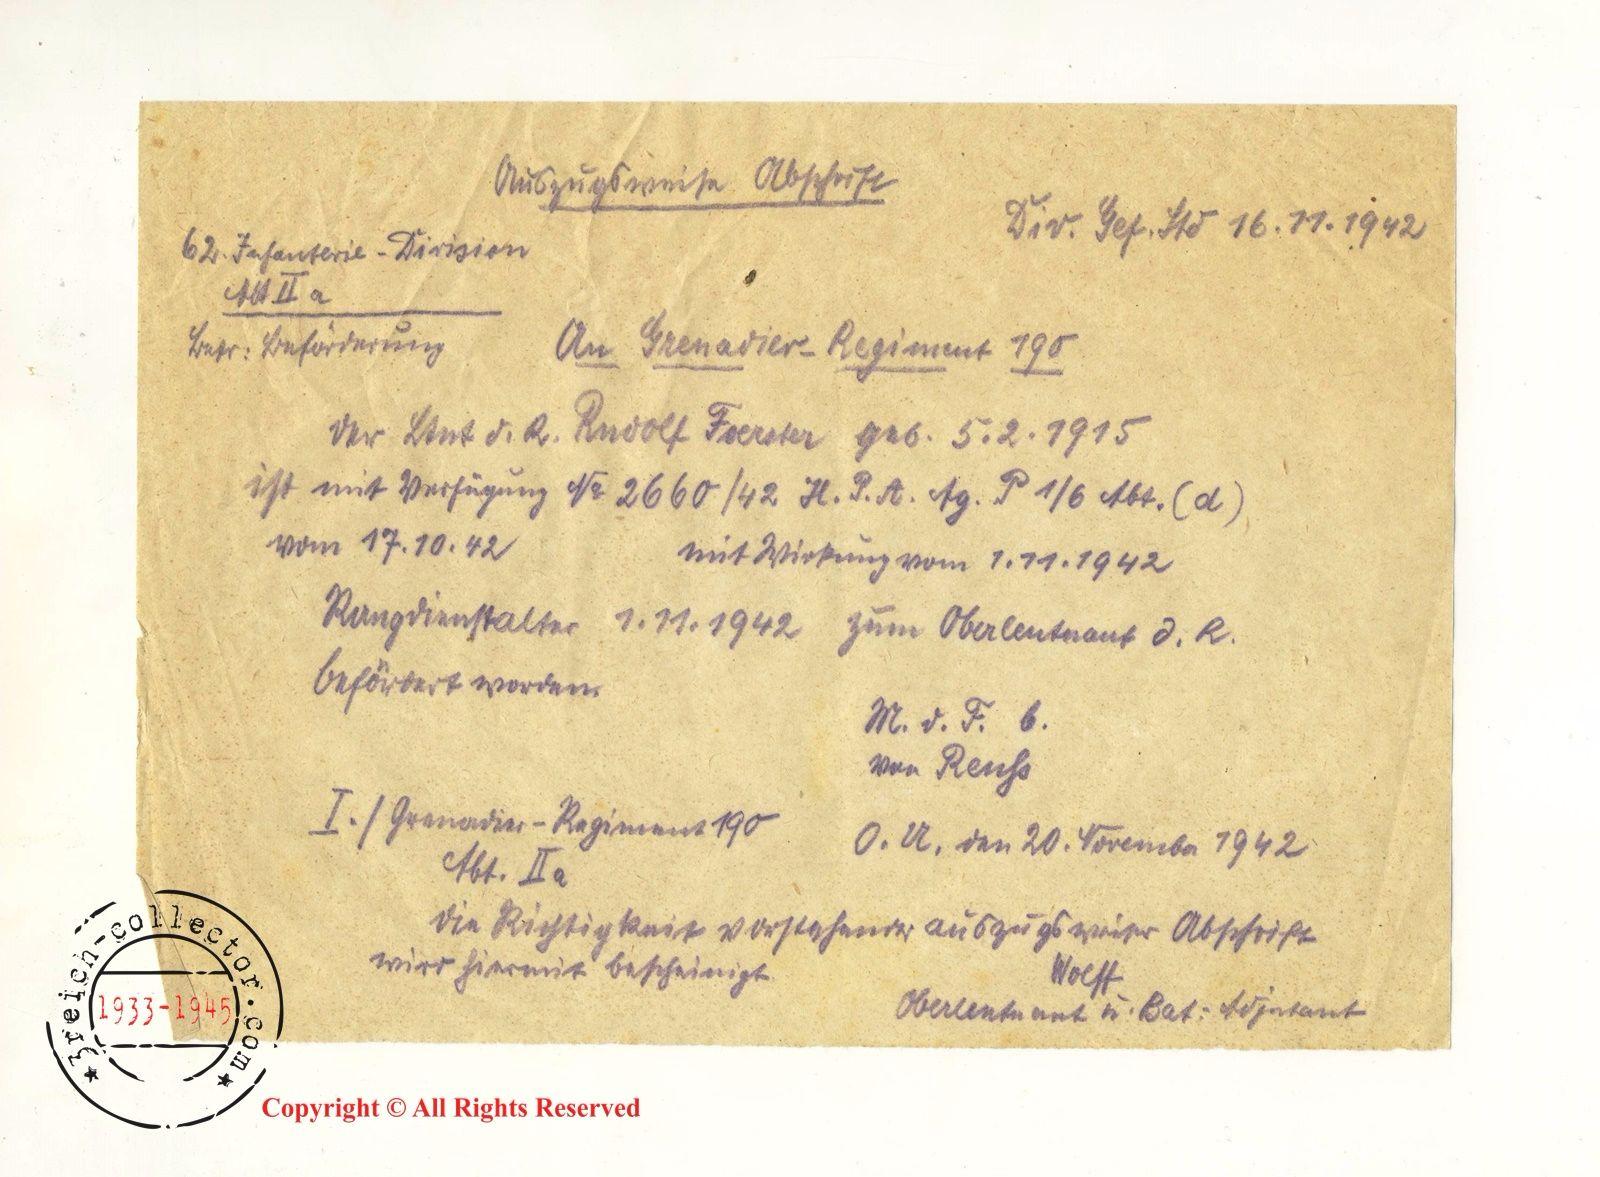 Auszugsweise Abschrift
Div. Gef. Std 16.11.1942
62. Infanterie-Division
Abt II a
Betr: Beförderung
An Grenadier-Regiment 190
der Ltnt d. R. Rudolf Foerster geb. 5.2.1915
ist mit Verfügung № 2660/42 H. P. A. Ag. P 1/6 Abt. (d)
vom 17.10.42 mit Wirkung vom 1.11.1942
Rangdienstalter 1.11.1942 zum Oberleutnant d. R.
befördert worden.
M. d. F. b.
von Reuß
I./Grenadier-Regiment 190
Abt. II a
O. U., den 20. November 1942
die Richtigkeit vorstehender auszugsweiser Abschrift
wird hiermit bescheinigt
Wolff
Oberleutnant u. Bat: Adjutant
3reich-collector.com
1933-1945
Copyright © All Rights Reserved